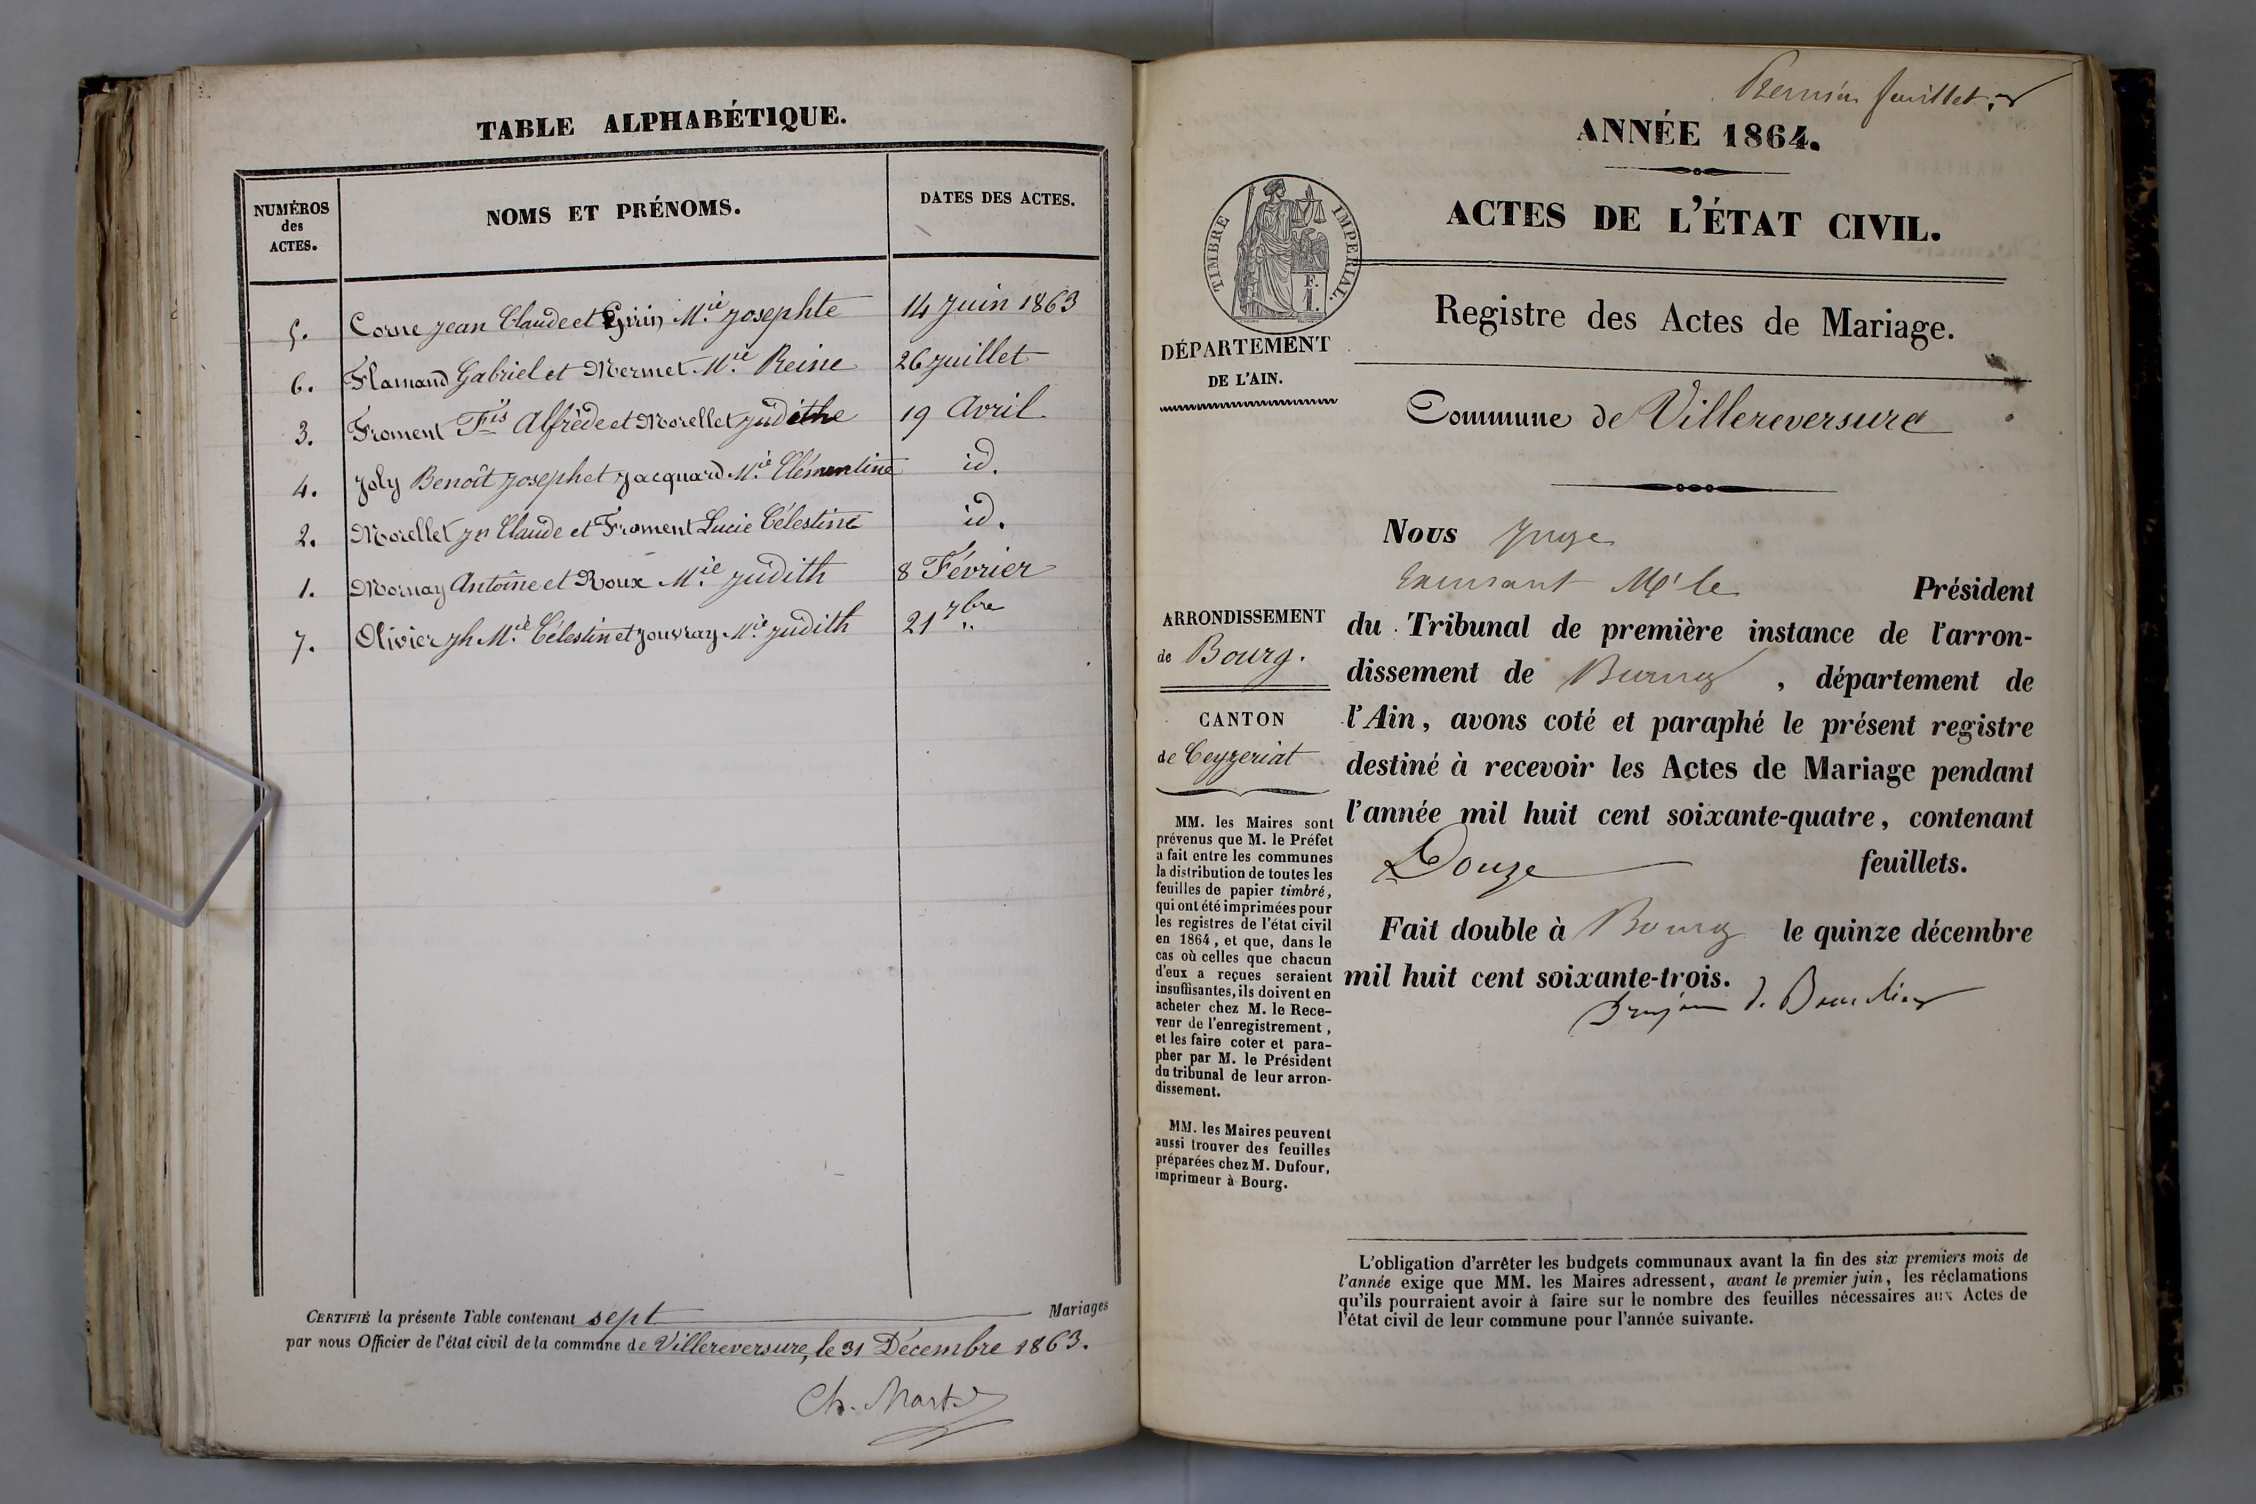 TABLE ALPHABÉTIQUE.
NUMÉROS
des
ACTES.
NOMS ET PRÉNOMS.
DATES DES ACTES.
5. Corne Jean Claude et Girin M.ie Josephte 14 Juin 1863
6. Flamand Gabriel et Mermet M.ie Reine 26 Juillet
3. Froment F.is Alfrède et Morellet Judithe 19 Avril
4. Joly Benoît Joseph et Jacquard M.ie Clémentine id.
2. Morellet Jn Claude et Froment Lucie Célestine id.
1. Mornay Antoine et Roux M.ie Judith 8 Février
7. Olivier Jh M.ie Célestin et Jouvray M.ie Judith 21 7bre
CERTIFIÉ la présente Table contenant sept Mariages
par nous Officier de l'état civil de la commune de Villereversure, le 31 Décembre 1863.
Ch. Mart
Premier feuillet
ANNÉE 1864.
ACTES DE L'ÉTAT CIVIL.
TIMBRE IMPERIAL.
F.
1.
Registre des Actes de Mariage.
DÉPARTEMENT
DE L'AIN.
Commune de Villereversure
ARRONDISSEMENT
de Bourg.
CANTON
de Ceyzeriat
MM. les Maires sont
prévenus que M. le Préfet
a fait entre les communes
la distribution de toutes les
feuilles de papier timbré,
qui ont été imprimées pour
les registres de l'état civil
en 1864, et que, dans le
cas où celles que chacun
d'eux a reçues seraient
insuffisantes, ils doivent en
acheter chez M. le Rece-
veur de l'enregistrement,
et les faire coter et para-
pher par M. le Président
du tribunal de leur arron-
dissement.
MM. les Maires peuvent
aussi trouver des feuilles
préparées chez M. Dufour,
imprimeur à Bourg.
Nous Juge
Mr le Président
du Tribunal de première instance de l'arron-
dissement de Bourg, département de
l'Ain, avons coté et paraphé le présent registre
destiné à recevoir les Actes de Mariage pendant
l'année mil huit cent soixante-quatre, contenant
Douze feuillets.
Fait double à Bourg le quinze décembre
mil huit cent soixante-trois.
L'obligation d'arrêter les budgets communaux avant la fin des six premiers mois de
l'année exige que MM. les Maires adressent, avant le premier juin, les réclamations
qu'ils pourraient avoir à faire sur le nombre des feuilles nécessaires aux Actes de
l'état civil de leur commune pour l'année suivante.